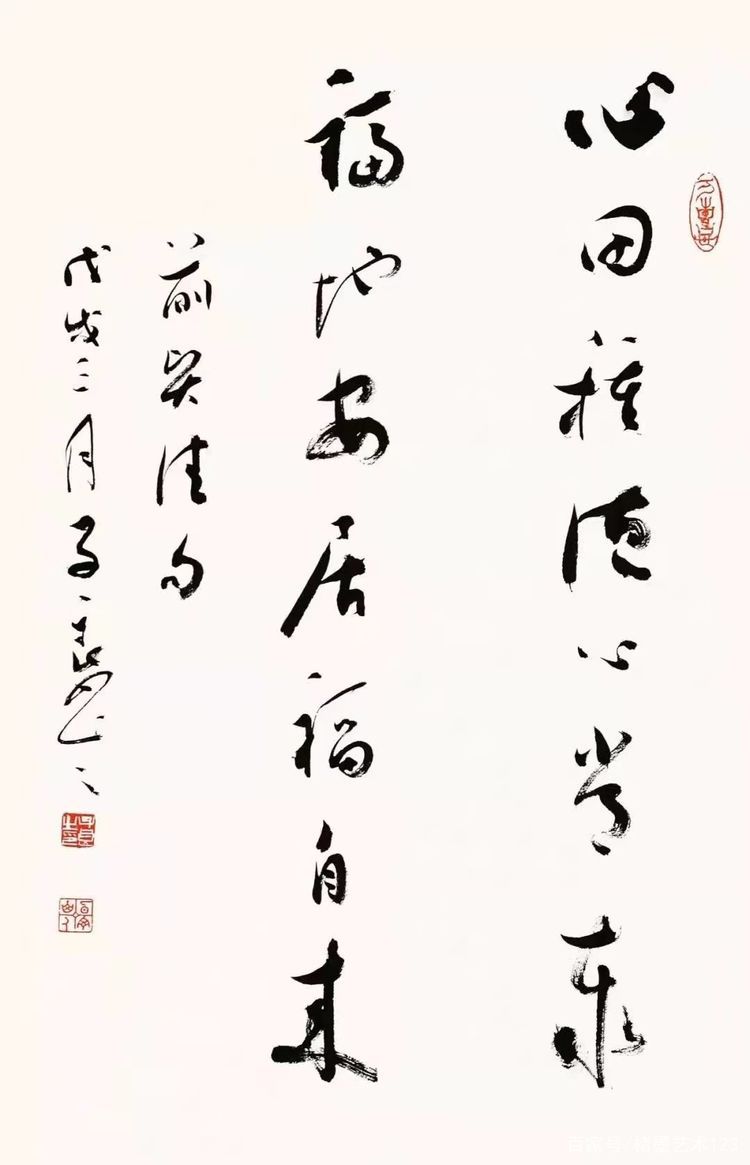 心田種德心常泰
福地安居福自来
前贤佳句
戊戌三月
百家号/楮墨艺术123